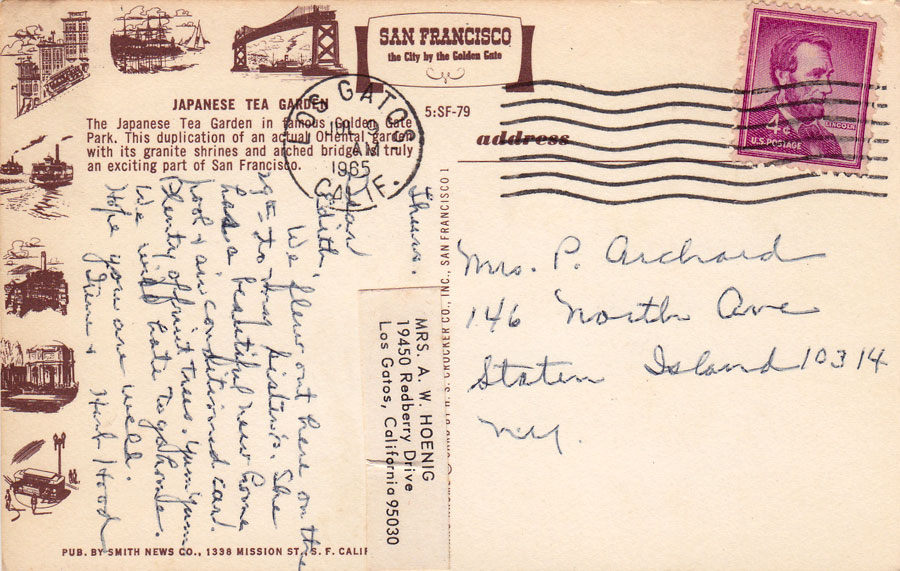 SAN FRANCISCO
the City by the Golden Gate
JAPANESE TEA GARDEN
The Japanese Tea Garden in famous Golden Gate
Park. This duplication of an actual Oriental garden
with its granite shrines and arched bridge is truly
an exciting part of San Francisco.
5:SF-79
address
LOS GATOS
AM
1965
CALIF.
4¢
LINCOLN
U.S. POSTAGE
Thurs.
Dear
Edith,
We flew out here on the
29th to my sister's. She
has a beautiful new home
pool & air conditioned card.
Plenty of fruit trees. Yum yum
We will hate to go home.
Hope you are well.
Irene & Herb Hood
MRS. A. W. HOENIG
19450 Redberry Drive
Los Gatos, California 95030
H. S. CROCKER CO., INC., SAN FRANCISCO 1
Mrs. P. Archard
146 North Ave
Staten Island 10314
N.Y.
PUB. BY SMITH NEWS CO., 1338 MISSION ST., S. F. CALIF